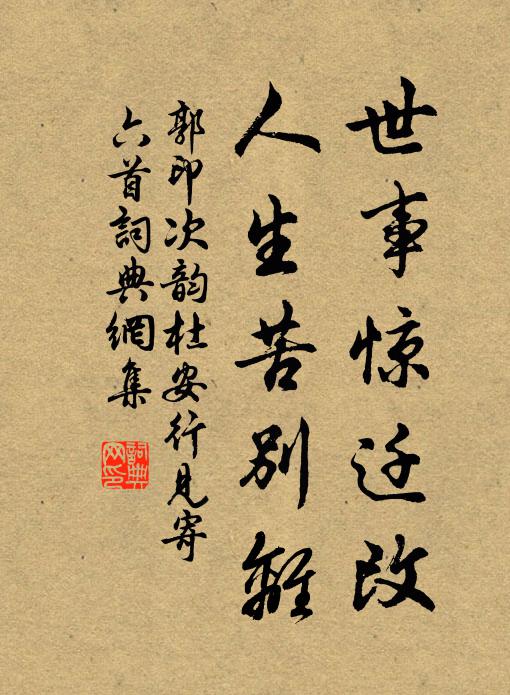 世事惊迁改
人生苦别離
郭印次韵杜安行見寄
六首詞典網集
詞典网印